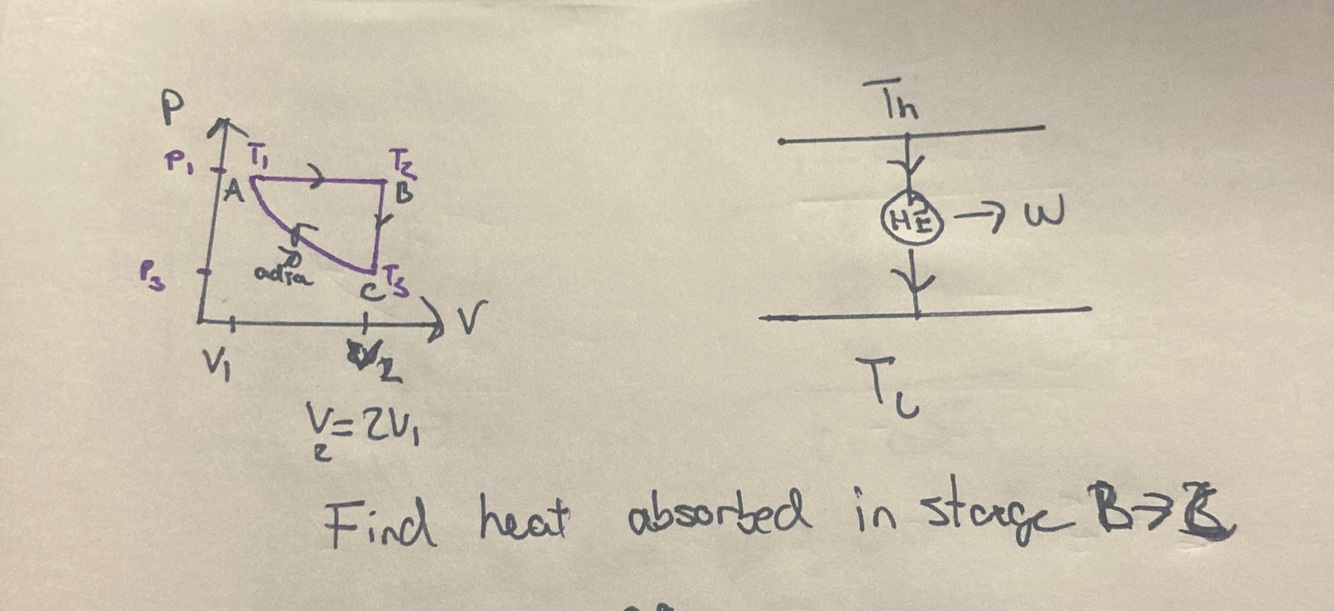 P
P₁
T₁
T₂
A
B
adia
P₃
C
T₃
V
V₁
V₂
V₂ = 2V₁
Th
HE → W
TL
Find heat absorbed in stage B →